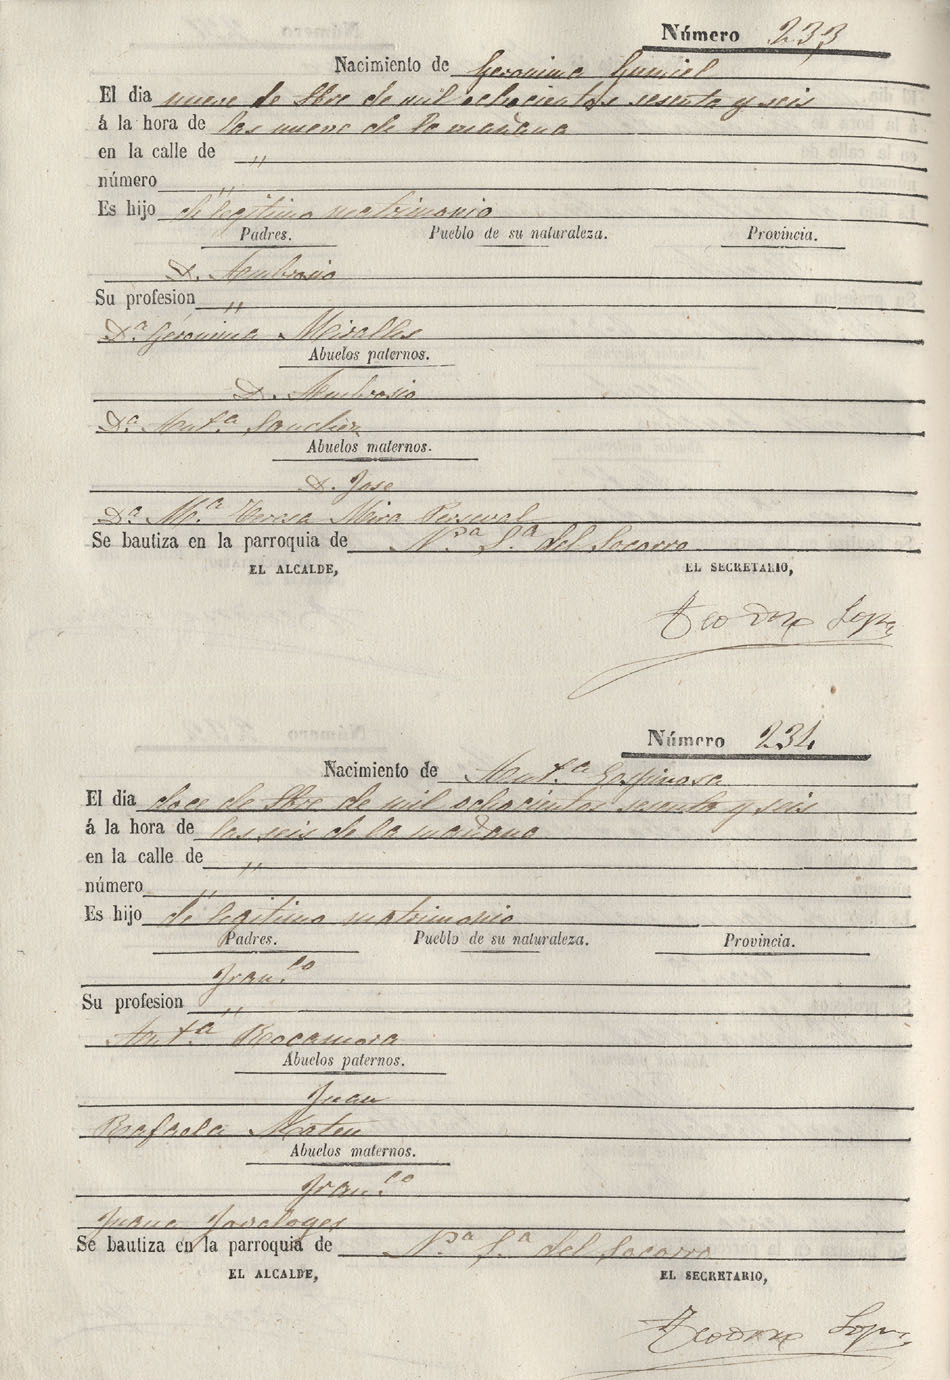 Número 233
Nacimiento de Geronima Gumiel
El dia nueve de 8bre de mil ochocientos sesenta y seis
á la hora de las nueve de la mañana
en la calle de "
número "
Es hijo de legitimo matrimonio
Padres. Pueblo de su naturaleza. Provincia.
D. Ambrosio
Su profesion "
Dª Geronima Miralles
Abuelos paternos.
D. Ambrosio
Dª Antª Sanchez
Abuelos maternos.
D. Jose
Dª Mª Teresa Mira Perseval
Se bautiza en la parroquia de Nª Sª del Socorro
EL ALCALDE, EL SECRETARIO,
Teodoro Lopez
Número 234
Nacimiento de Antª Espinosa
El dia doce de 8bre de mil ochocientos sesenta y seis
á la hora de las seis de la mañana
en la calle de "
número "
Es hijo de legitimo matrimonio
Padres. Pueblo de su naturaleza. Provincia.
Franco
Su profesion "
Antª Rocamora
Abuelos paternos.
Juan
Rafaela Mateu
Abuelos maternos.
Franco
Juana
Se bautiza en la parroquia de Nª Sª del Socorro
EL ALCALDE, EL SECRETARIO,
Teodoro Lopez